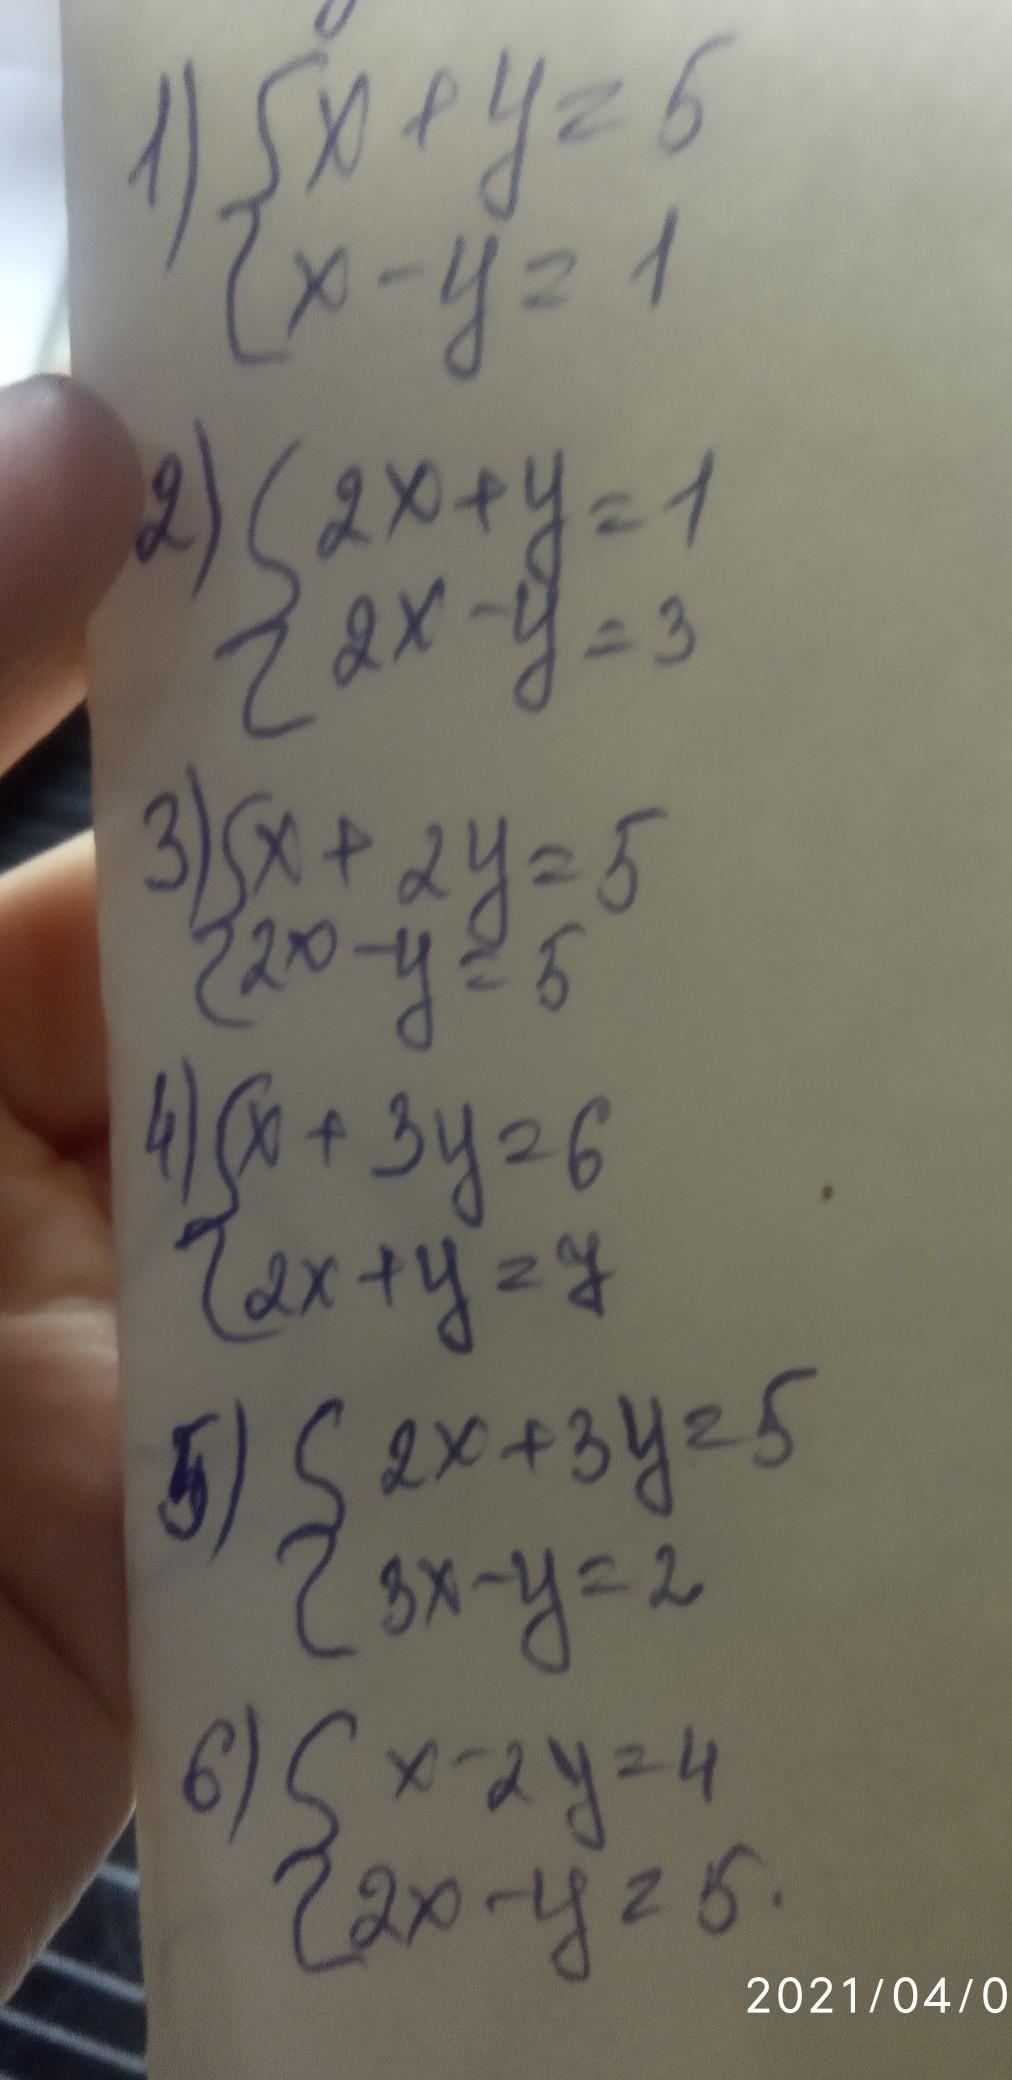 1) { x + y = 5
{ x - y = 1
2) { 2x + y = 1
{ 2x - y = 3
3) { x + 2y = 5
{ 2x - y = 5
4) { x + 3y = 6
{ 2x + y = 7
5) { 2x + 3y = 5
{ 3x - y = 2
6) { x - 2y = 4
{ 2x - y = 5.
2021/04/0